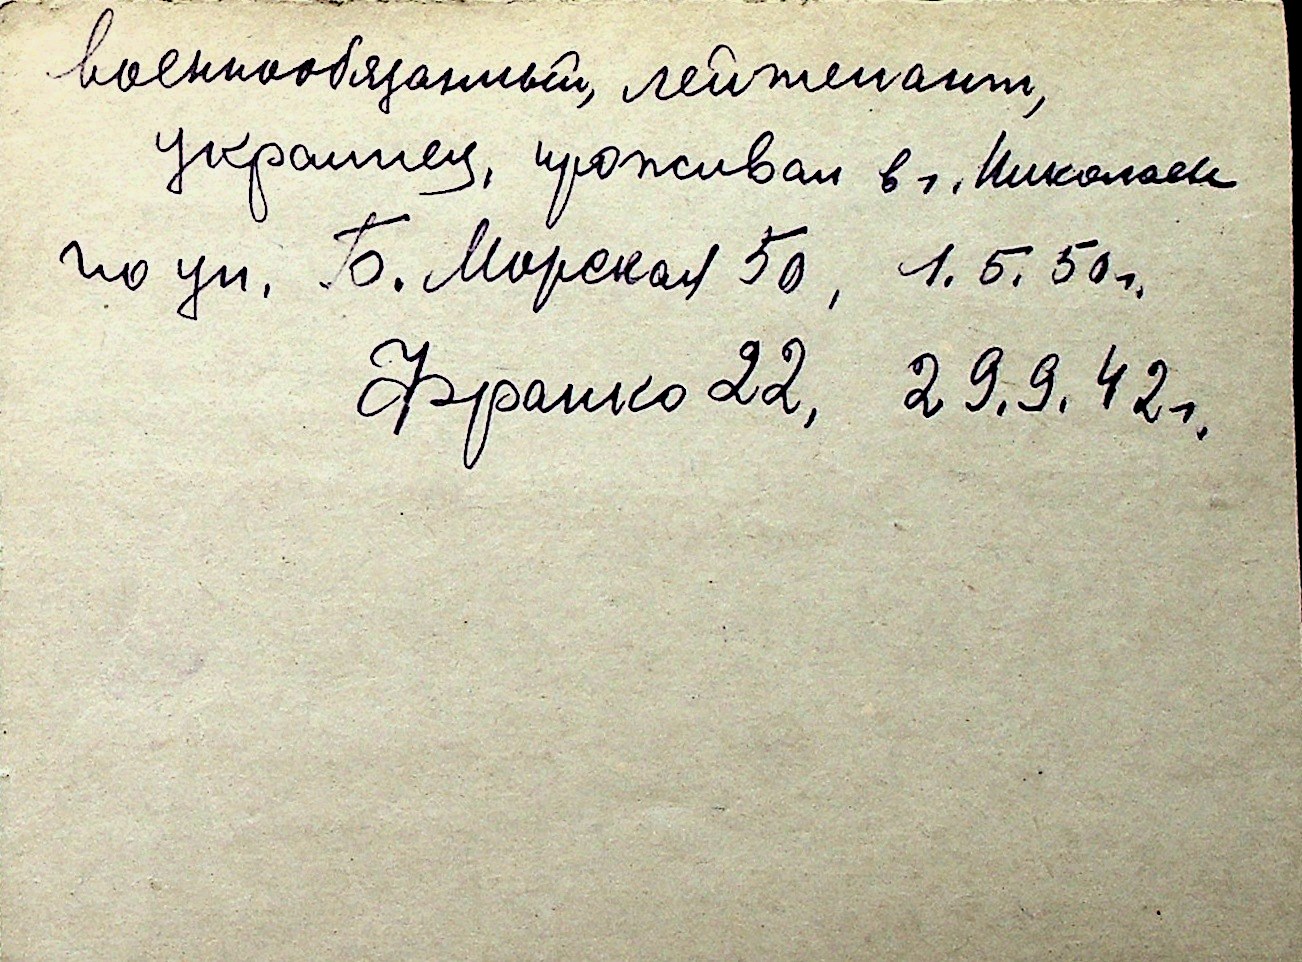 военнообязанный, лейтенант,
украинец, проживал в г. Николаеве
по ул. Б. Морская 50, 1.5.50г.
Франко 22, 29.9.42г.